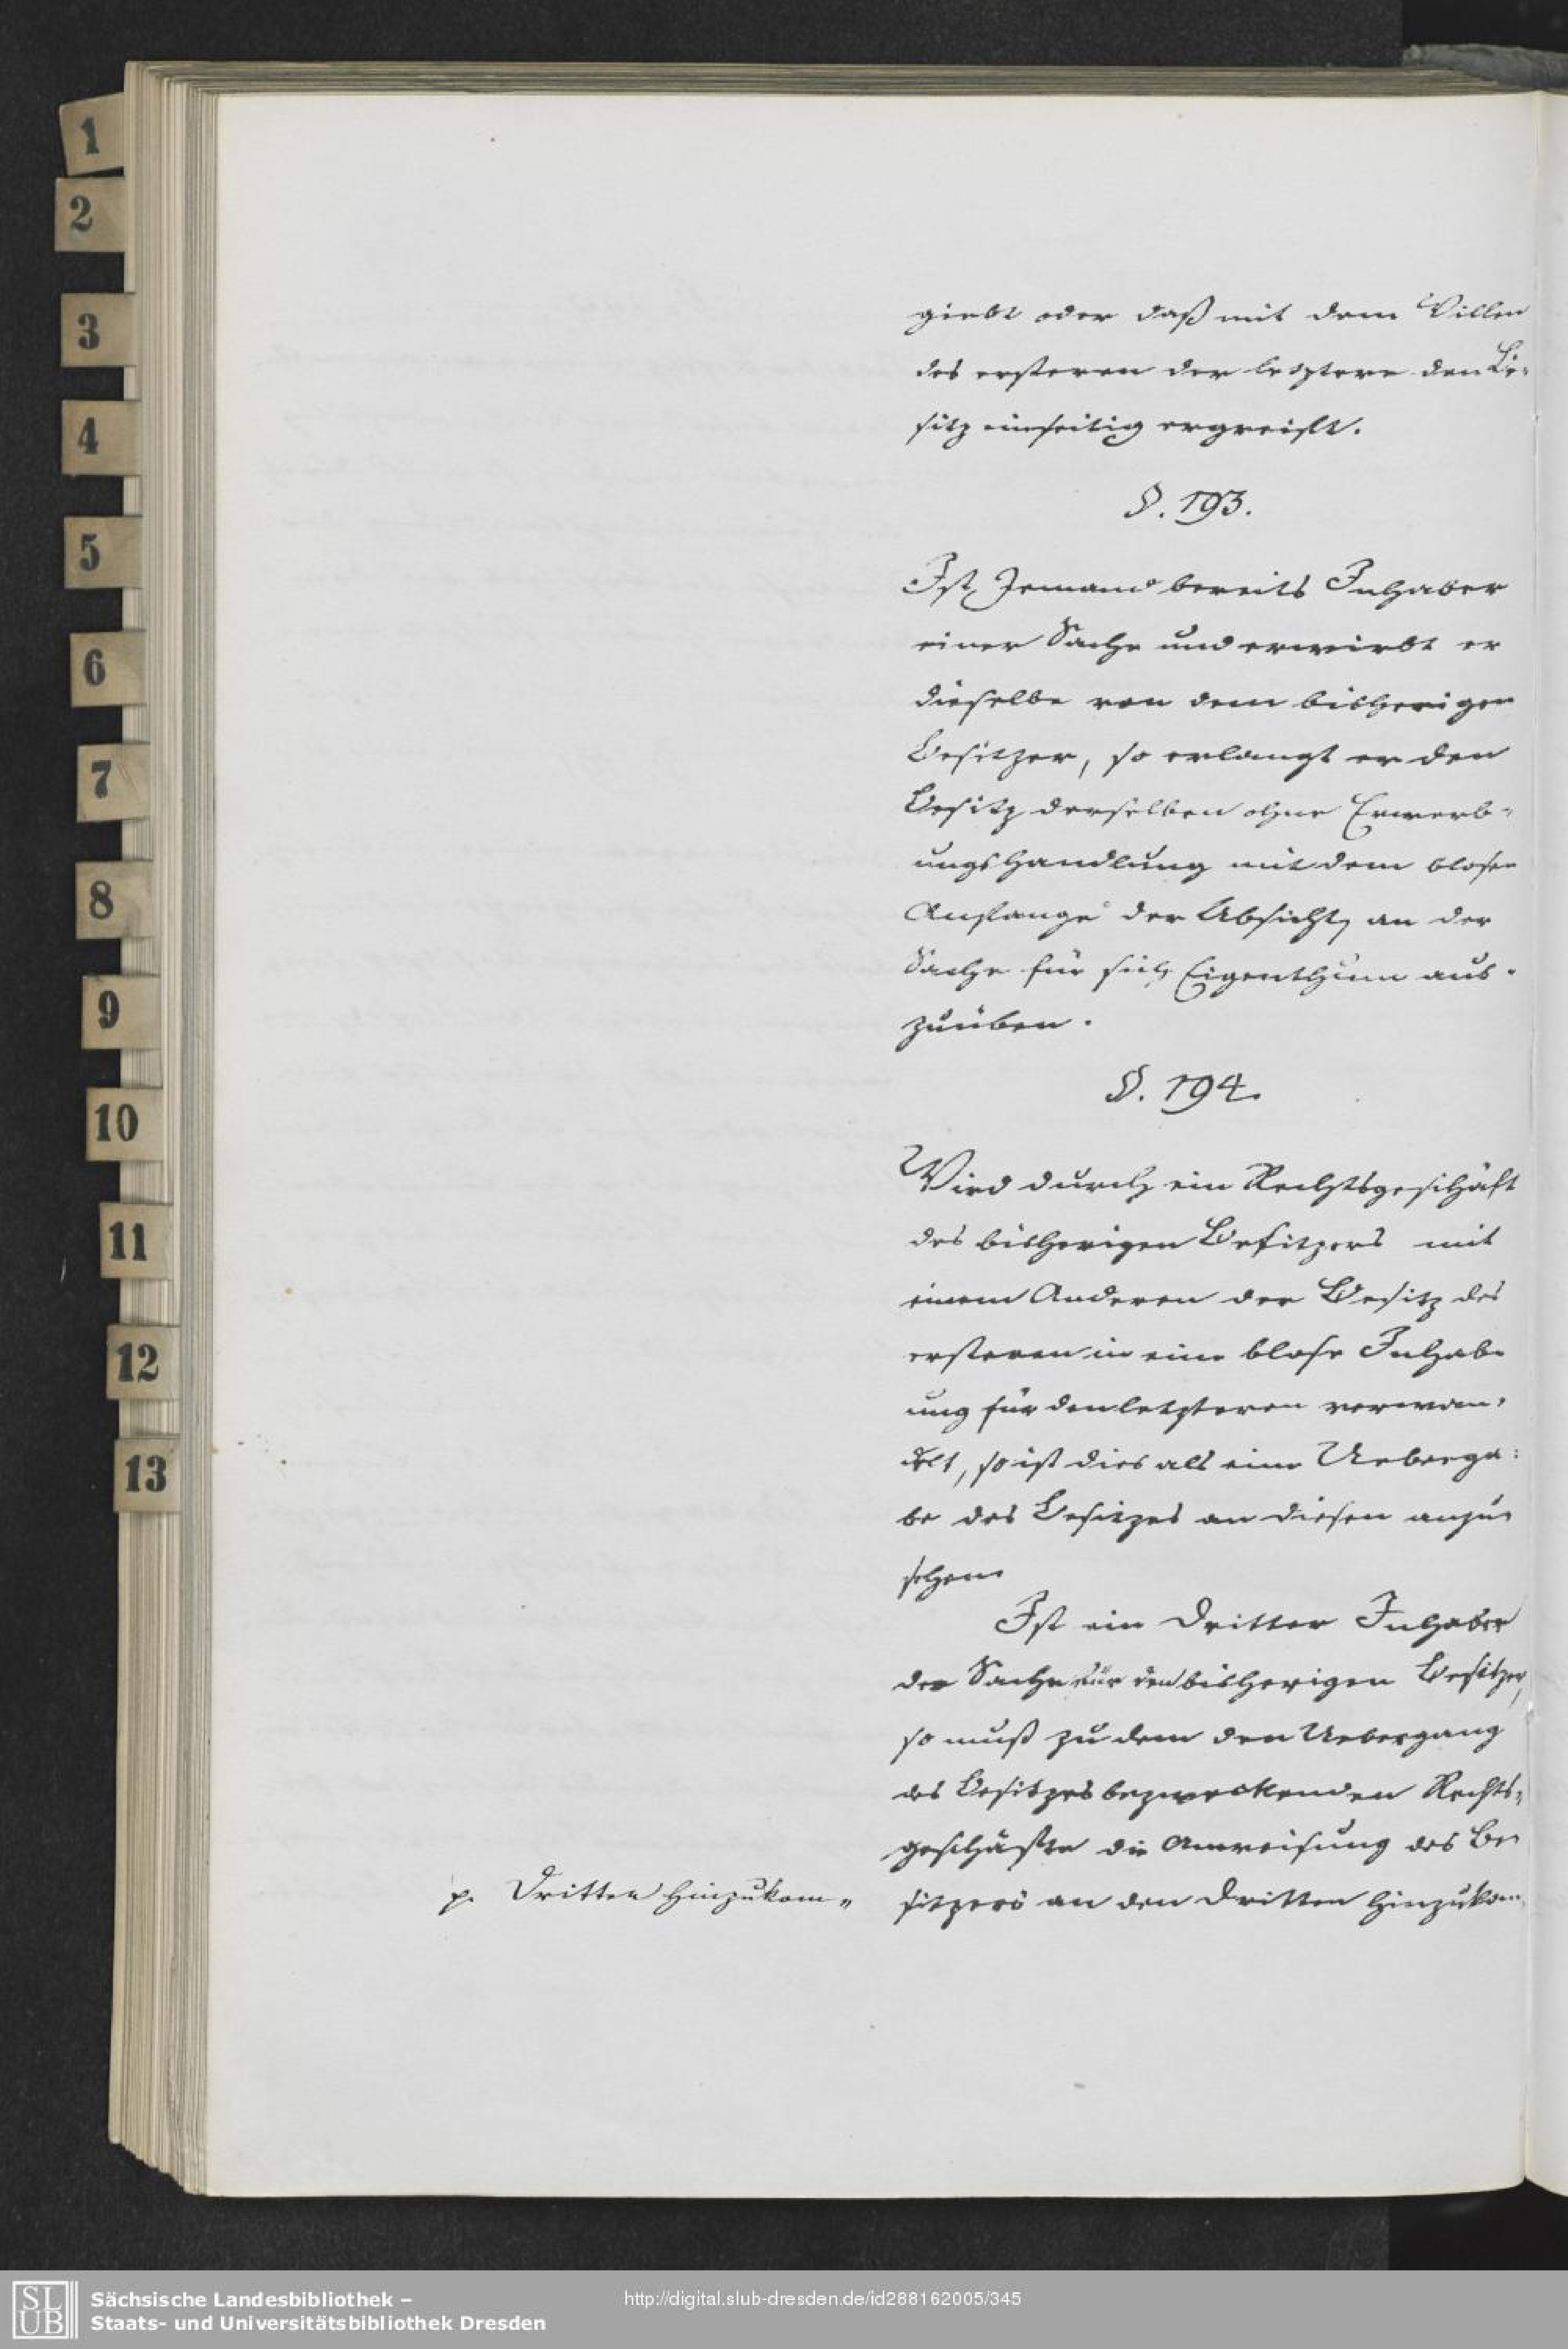 1
2
3
4
5
6
7
8
9
10
11
12
13
giebt oder daß mit dem Willen
des ersteren der letztere den Be-
sitz einseitig ergreift.
§. 193.
Ist Jemand bereits Inhaber
einer Sache und erwirbt er
dieselbe von dem bisherigen
Besitzer, so erlangt er den
Besitz derselben ohne Erwerb-
ungshandlung mit dem blosen
Anfange der Absicht, an der
Sache für sich Eigenthum aus-
zuüben.
§. 194.
Wird durch ein Rechtsgeschäft
des bisherigen Besitzers mit
einem Anderen der Besitz des
ersteren in eine blose Inhab-
ung für den letzteren verwan-
delt, so ist dies als eine Ueberga-
be des Besitzes an diesen anzu-
sehen
Ist ein Dritter Inhaber
der Sache für den bisherigen Besitzer,
so muß zu dem den Uebergang
des Besitzes bezweckenden Rechts-
geschäfte die Anweisung des Be-
sitzers an den Dritten hinzukom-
p. Dritten hinzukom-
SLUB
Sächsische Landesbibliothek –
Staats- und Universitätsbibliothek Dresden
http://digital.slub-dresden.de/id288162005/345